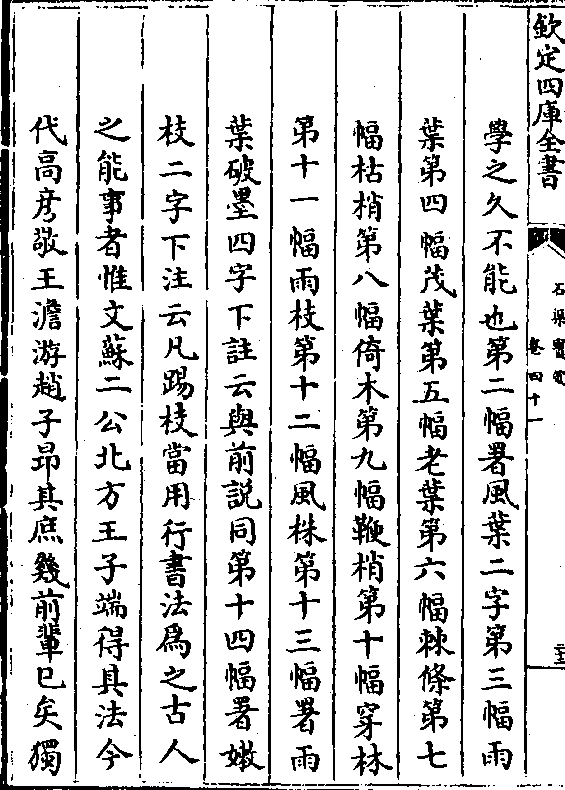 欽定四庫全書
石渠寶笈
卷四十一
學之久不能也第二幅署風葉二字第三幅雨
葉第四幅茂葉第五幅老葉第六幅棘條第七
幅枯梢第八幅倚木第九幅鞭梢第十幅穿林
第十一幅雨枝第十二幅風株第十三幅署雨
葉破墨四字下註云與前説同第十四幅署嫩
枝二字下注云凡踢枝當用行書法爲之古人
之能事者惟文蘇二公北方王子端得其法今
代高彦敬王澹游趙子昂其庶幾前輩已矣獨